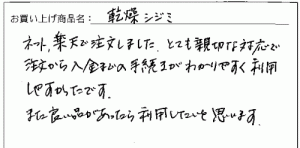 お買い上げ商品名： 乾燥シジミ
ネット,楽天で注文しました。とても親切な対応で
注文から入金までの手続きがわかりやすく利用
しやすかったです。
また良い品があったら利用したいと思います。